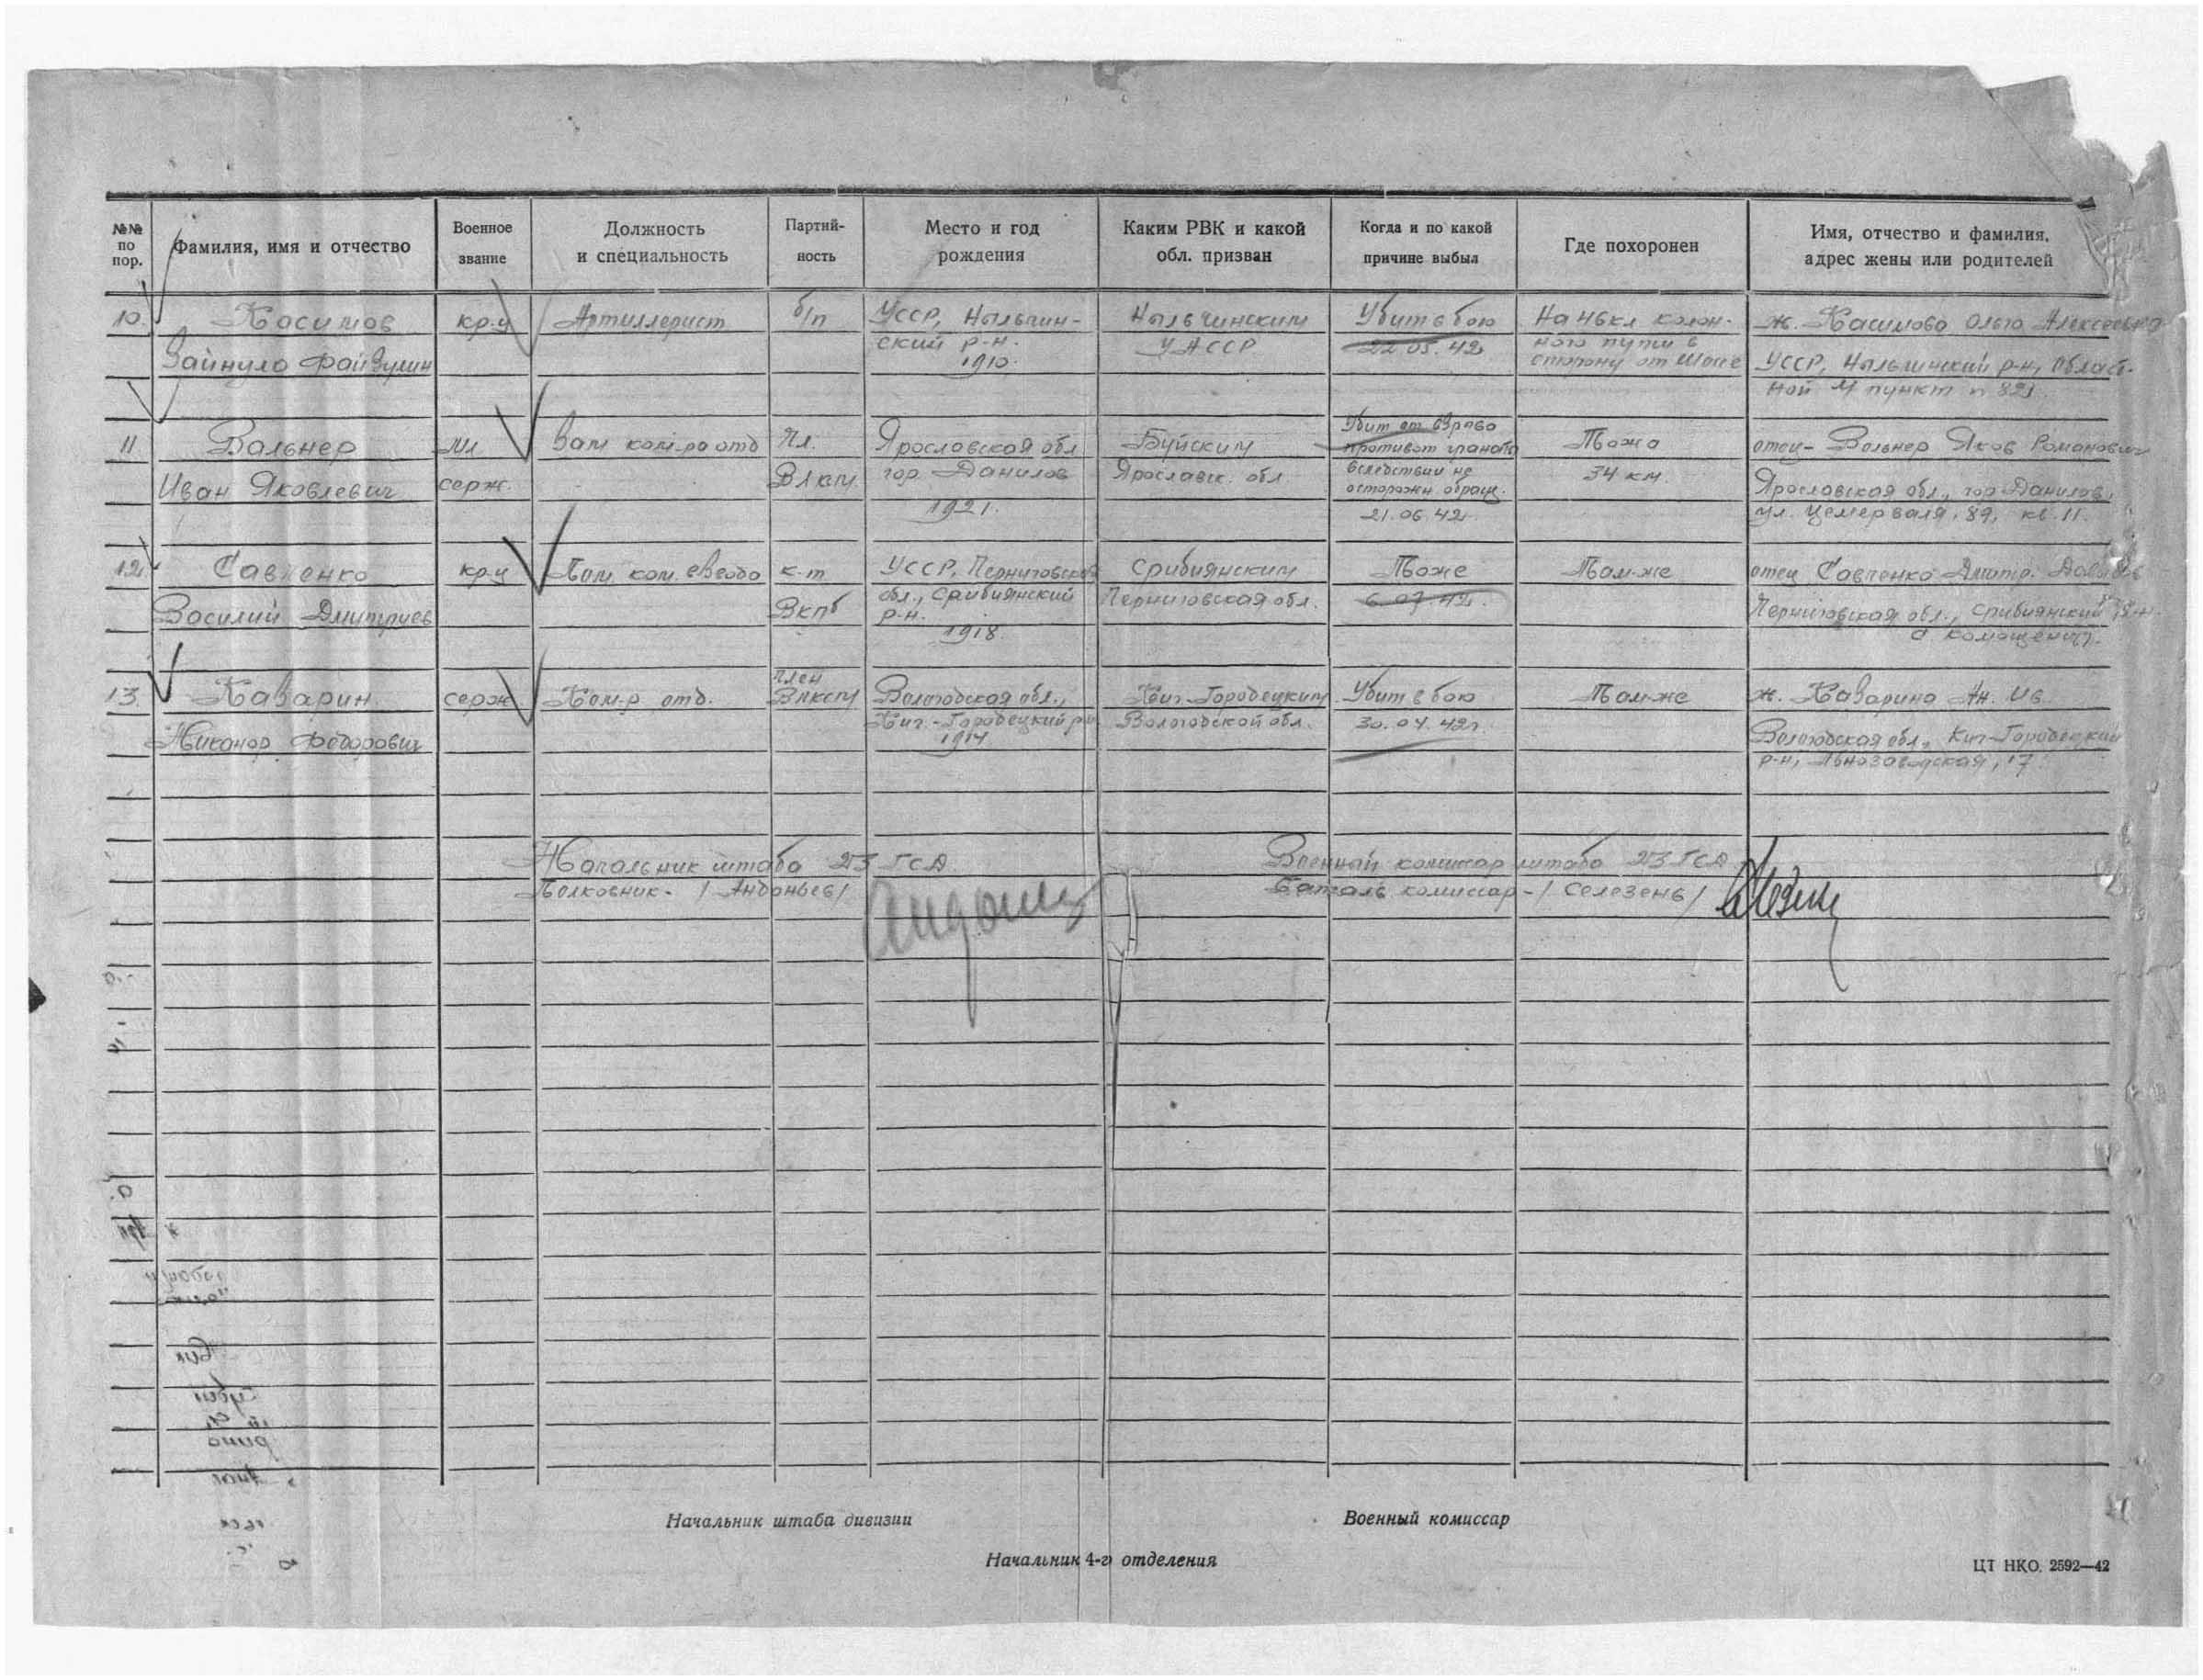 №№ по пор.
Фамилия, имя и отчество
Военное звание
Должность и специальность
Партий-ность
Место и год рождения
Каким РВК и какой обл. призван
Когда и по какой причине выбыл
Где похоронен
Имя, отчество и фамилия, адрес жены или родителей
10. Касимов кр-ц Артиллерист б/п УССР, Нылычин- Нылычинским Убит в бою На 46 кл колон- ж. Касимова Ольга Алексеевна
ский р-н. УАССР 22.05.42 ного пути в
Зайнула Файзулин 1910. сторону от шоссе УССР, Нылычинский р-н, Област-
ной М пункт п 821
11 Вальнер мл Зам ком-ра отд Чл. Ярославская обл Буйским Убит от взрыва противот гранаты Тоже отец- Вальнер Яков Романович
Иван Яковлевич серж. ВЛКСМ гор. Данилов Ярославск. обл вследствии не осторожн обращ. 34 км. Ярославская обл., гор Данилов,
1921. 21.06.42 ул. Урицкого, 89, кв. 11.
12. Савченко кр-ц Пом. ком. взвода к-т УССР, Черниговская Срибнянским Тоже Там-же отец Савченко Дмитр.
обл., Срибнянский Черниговская обл. 6.07.42.
Василий Дмитриев ВКПб р-н. Черниговская обл., Срибнянский р-н.
1918 с
13. Каварин серж Ком-р отд. член ВЛКСМ Вологодская обл., Кич.-Городецким Убит в бою Там-же ж. Каварина Ан. Ив.
Кич.-Городецкий р-н Вологодской обл. 30.04.42г.
Никанор Федорович 1914 Вологодская обл., Кич-Городецкий
р-н, Льнозаводская, 17.
Начальник штаба 23 ГСД Военный комиссар штаба 23 ГСД
Полковник- /Андоньев/ Баталь комиссар- /Селезень/
Начальник штаба дивизии
Военный комиссар
Начальник 4-го отделения
ЦТ НКО. 2592—42